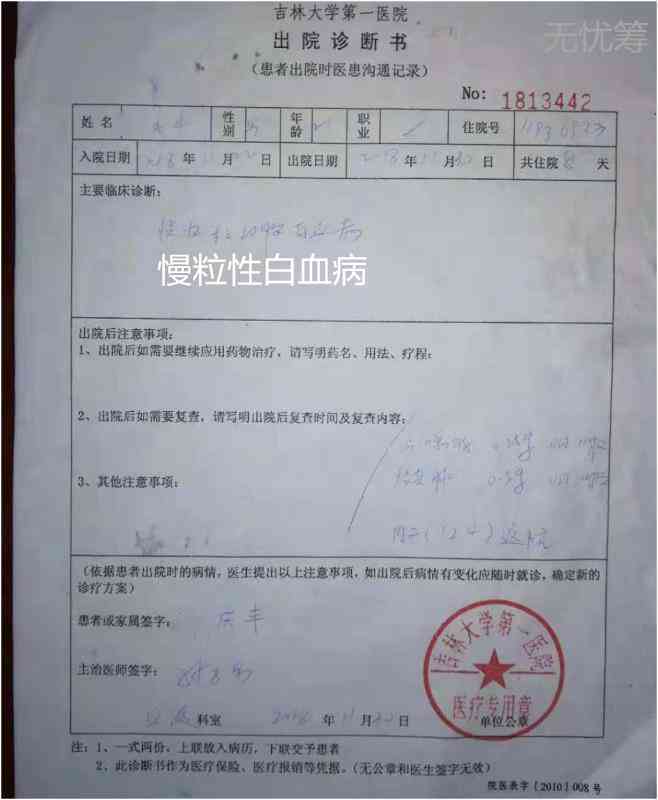 吉林大学第一医院
出院诊断书
(患者出院时医患沟通记录)
无忧筹
No: 1813442
姓名 性别 年龄 职业 住院号
入院日期 2018年11月22日 出院日期 2018年11月30日 共住院8天
主要临床诊断:
慢性粒细胞白血病
慢粒性白血病
出院后注意事项:
1、出院后如需要继续应用药物治疗,请写明药名、用法、疗程:
2、出院后如需要复查,请写明出院后复查时间及复查内容:
3、其他注意事项:
(依据患者出院时的病情,医生提出以上注意事项,如出院后病情有变化应随时就诊,确定新的
诊疗方案)
患者或家属签字:
主治医师签字:
科室 2018年11月30日 单位公章
吉林大学第一医院
医疗专用章
注:1、一式两份,上联放入病历,下联交予患者
2、此诊断书作为医疗保险、医疗报销等凭据。(无公章和医生签字无效)
院医表字[2010]008号